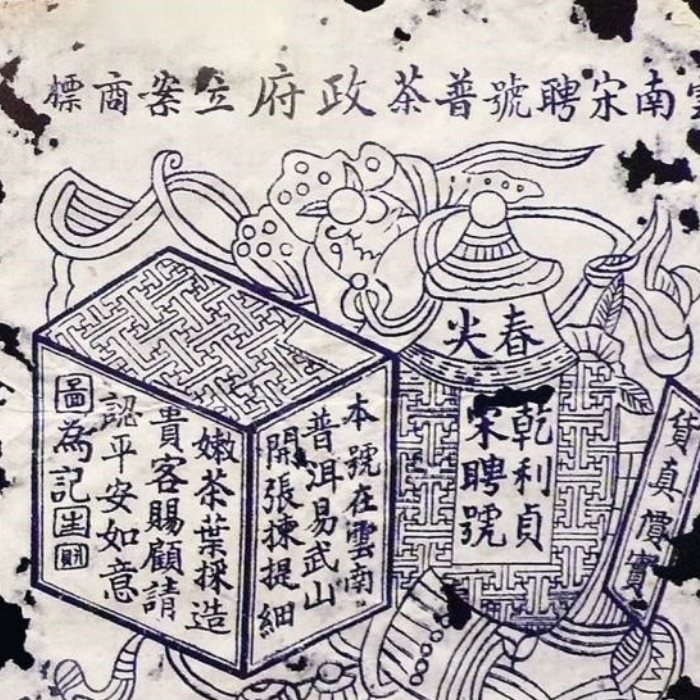 南宋聘號普茶政府立案商標
春尖
乾利貞
宋聘號
貨真價實
本號在雲南
普洱易武山
開張揀提細
嫩茶葉採造
貴客賜顧請
認平安如意
圖為記生財